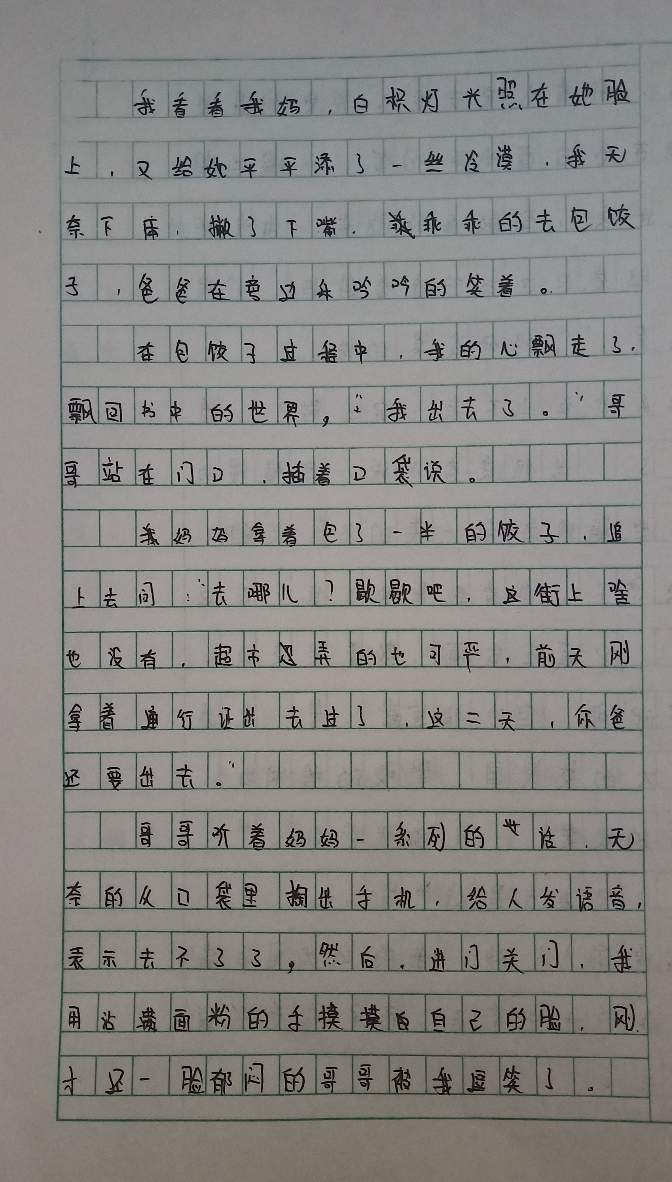 我看看我妈，白炽灯光照在她脸
上，又给她平平添了一丝冷漠，我无
奈下床，撇了下嘴，乖乖的去包饺
子，爸爸在旁边乐呤呤的笑着。
在包饺子过程中，我的心飘走了，
飘回书中的世界，“我出去了。”哥
哥站在门口，插着口袋说。
我妈妈拿着包了一半的饺子，追
上去问：“去哪儿？歇歇吧，这街上啥
也没有，超市弄的也可严，前天刚
拿着通行证出去过了，这二天，你爸
还要出去。”
哥哥听着妈妈一系列的话，无
奈的从口袋里掏出手机，给人发语音，
表示去不了了，然后，进门关门，我
用沾满面粉的手摸摸自己的脸，刚
才还一脸郁闷的哥哥被我逗笑了。